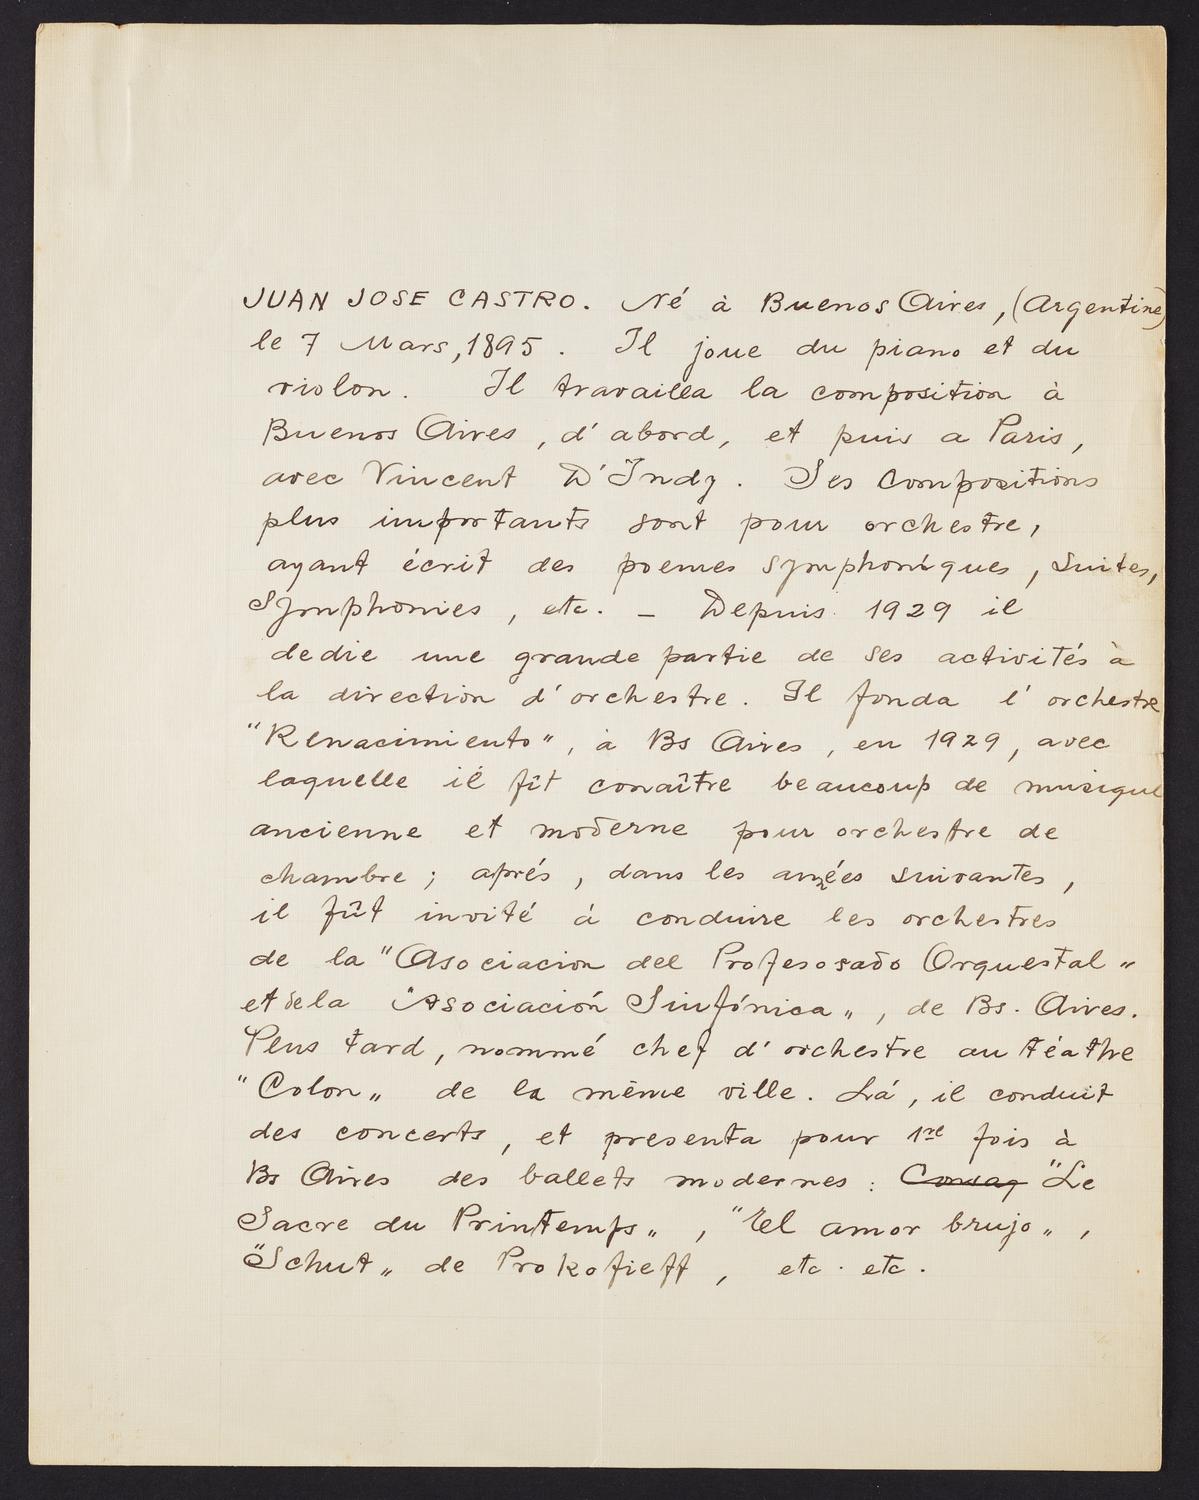 JUAN JOSE CASTRO. Né à Buenos Aires, (Argentine)
le 7 Mars, 1895. Il joue du piano et du
violon. Il travailla la composition à
Buenos Aires, d'abord, et puis a Paris,
avec Vincent D'Indy. Ses Compositions
plus importants sont pour orchestre,
ayant écrit des poemes symphoniques, suites,
Symphonies, etc. — Depuis 1929 il
dedie une grande partie de ses activités à
la direction d'orchestre. Il fonda l'orchestre
"Renacimiento", à Bs Aires, en 1929, avec
laquelle il fît conaître beaucoup de musique
ancienne et moderne pour orchestre de
chambre; aprés, dans les anées suivantes,
il fût invité à conduire les orchestres
de la "Asociacion del Profesosado Orquestal"
et de la "Asociación Sinfónica", de Bs. Aires.
Plus tard, nommé chef d'orchestre au téathre
"Colon" de la même ville. Lá, il conduit
des concerts, et presenta pour 1re fois à
Bs Aires des ballets modernes: "Le
Sacre du Printemps", "El amor brujo",
"Schut" de Prokofieff, etc. etc.